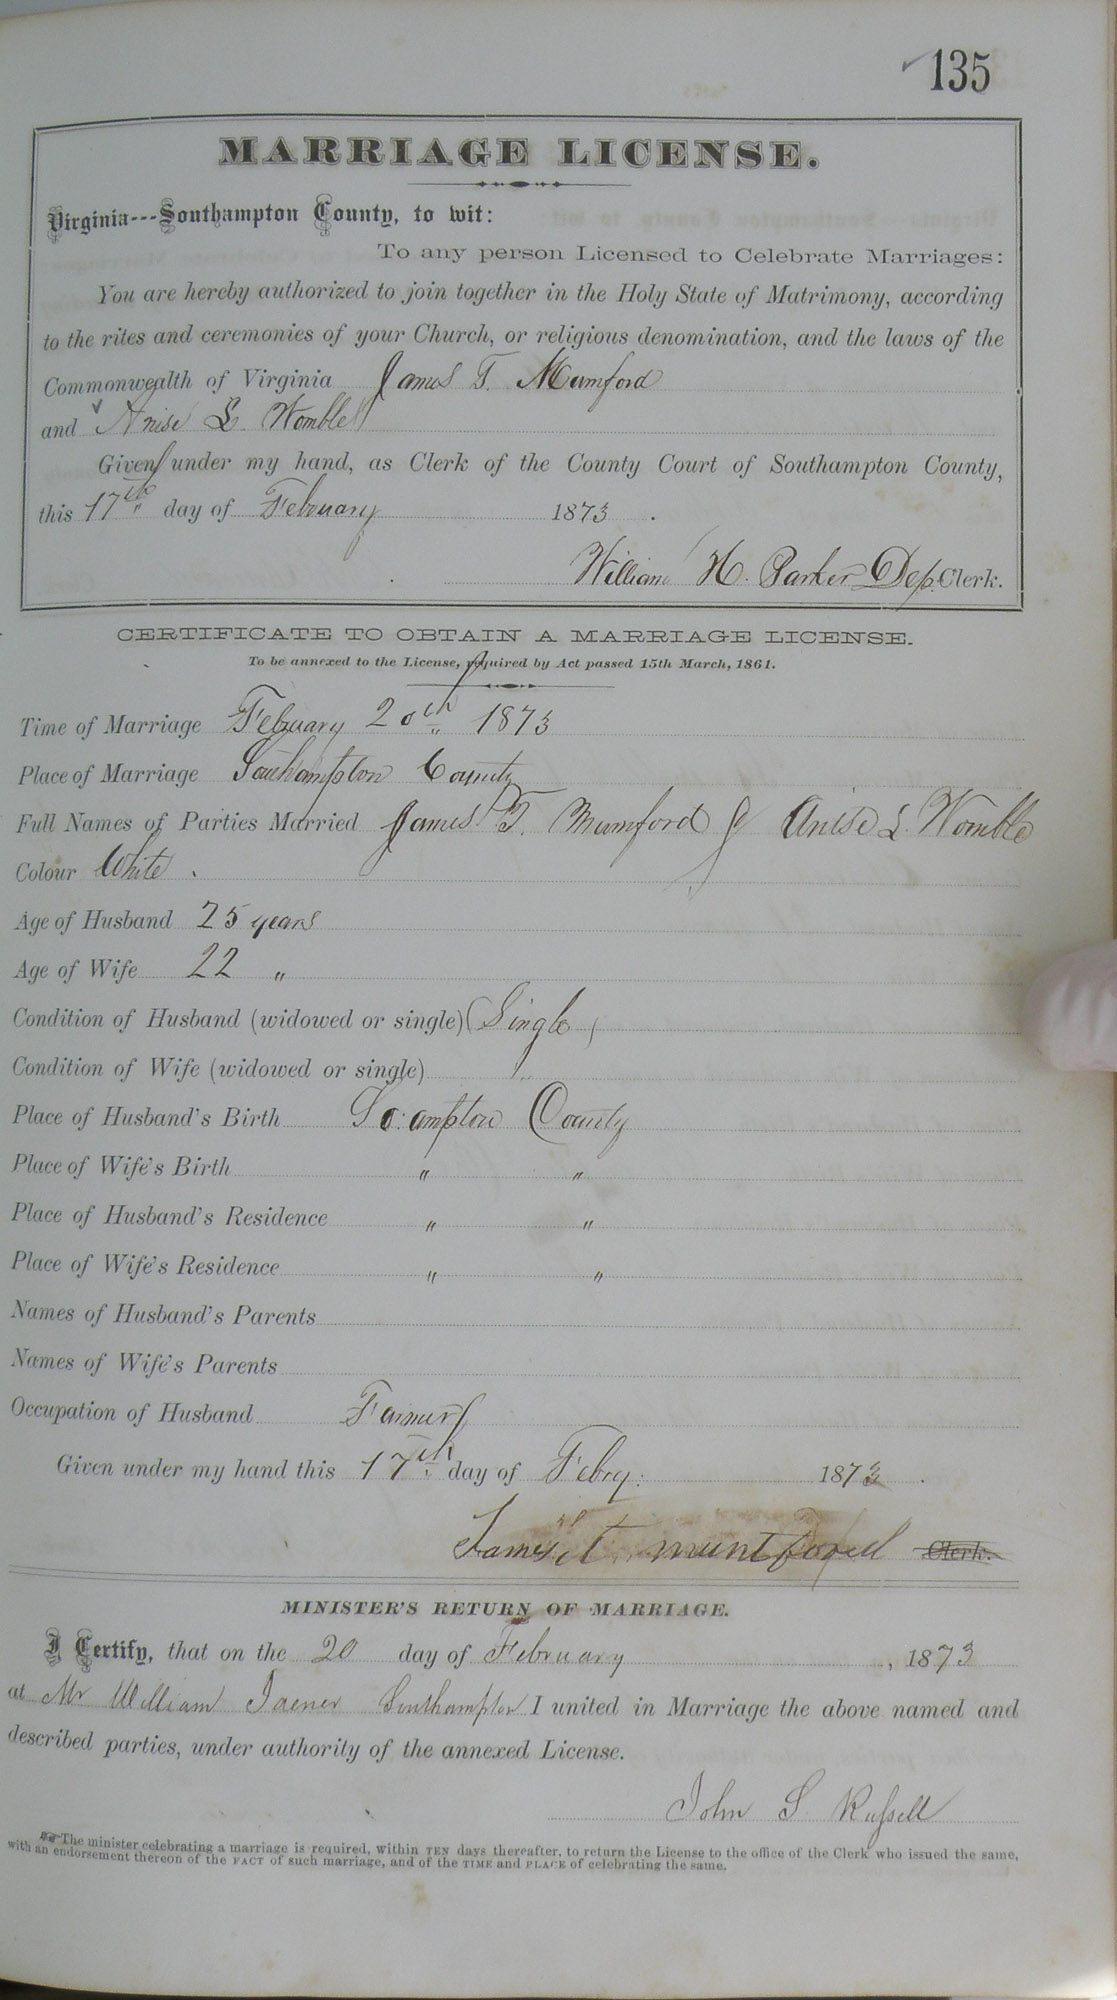 135
MARRIAGE LICENSE.
Virginia---Southampton County, to wit:
To any person Licensed to Celebrate Marriages:
You are hereby authorized to join together in the Holy State of Matrimony, according
to the rites and ceremonies of your Church, or religious denomination, and the laws of the
Commonwealth of Virginia James T. Mumford
and Anise L. Womble
Given under my hand, as Clerk of the County Court of Southampton County,
this 17th day of February 1873.
William H. Parker Dep. Clerk.
CERTIFICATE TO OBTAIN A MARRIAGE LICENSE.
To be annexed to the License, required by Act passed 15th March, 1861.
Time of Marriage February 20th 1873
Place of Marriage Southampton County
Full Names of Parties Married James T. Mumford & Anise L. Womble
Colour White.
Age of Husband 25 years
Age of Wife 22 "
Condition of Husband (widowed or single) (Single)
Condition of Wife (widowed or single)
Place of Husband's Birth So:ampton County
Place of Wife's Birth " "
Place of Husband's Residence " "
Place of Wife's Residence " "
Names of Husband's Parents
Names of Wife's Parents
Occupation of Husband Farmer
Given under my hand this 17th day of Febry: 1873.
James T. muntfored Clerk.
MINISTER'S RETURN OF MARRIAGE.
I Certify, that on the 20 day of February, 1873
at Mr William Southampton I united in Marriage the above named and
described parties, under authority of the annexed License.
John S. Russell
The minister celebrating a marriage is required, within TEN days thereafter, to return the License to the office of the Clerk who issued the same,
with an endorsement thereon of the FACT of such marriage, and of the TIME and PLACE of celebrating the same.